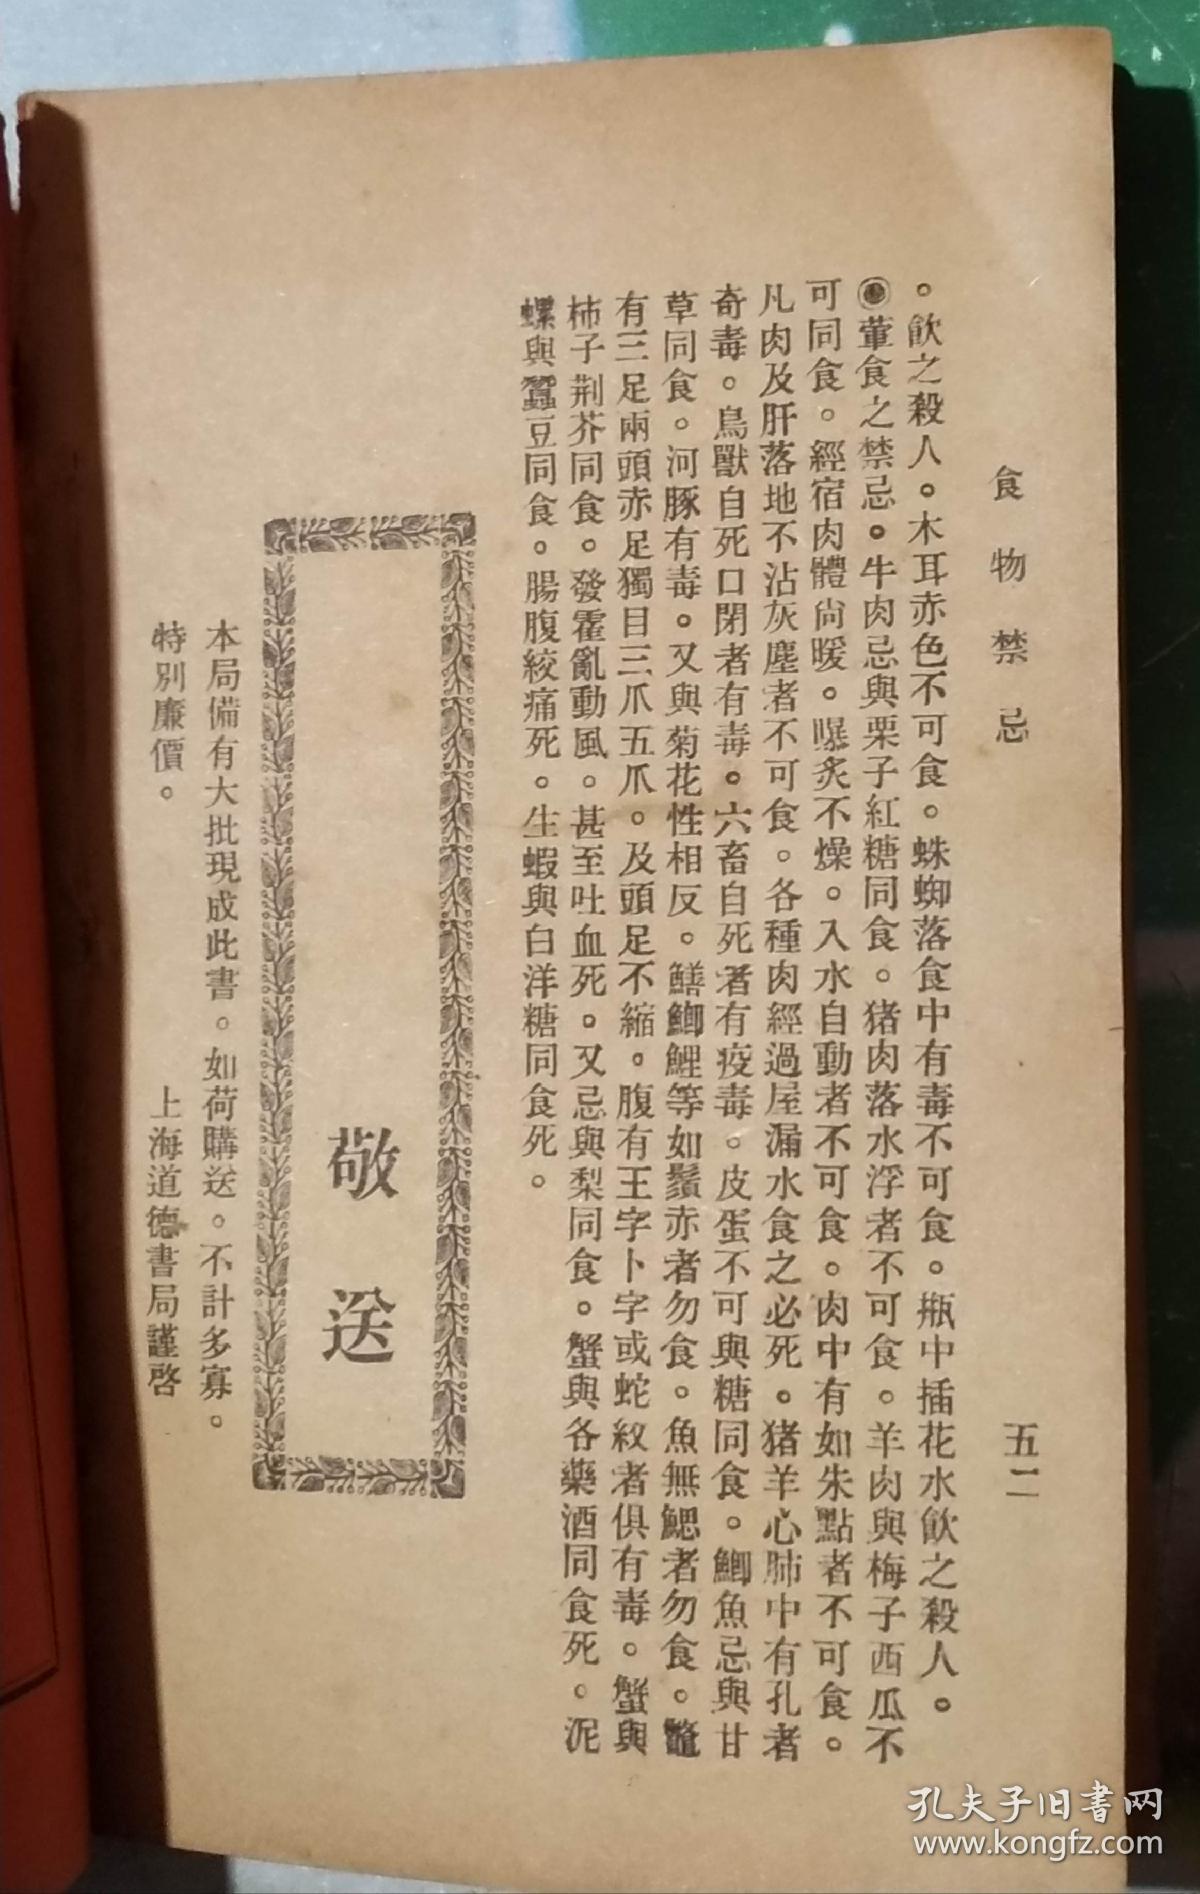 食物禁忌　五二
。飲之殺人。木耳赤色不可食。蛛蜘落食中有毒不可食。瓶中插花水飲之殺人。
◉葷食之禁忌。牛肉忌與栗子紅糖同食。猪肉落水浮者不可食。羊肉與梅子西瓜不
可同食。經宿肉體尙暖。曝炙不燥。入水自動者不可食。肉中有如朱點者不可食。
凡肉及肝落地不沾灰塵者不可食。各種肉經過屋漏水食之必死。猪羊心肺中有孔者
奇毒。鳥獸自死口閉者有毒。六畜自死者有疫毒。皮蛋不可與糖同食。鯽魚忌與甘
草同食。河豚有毒。又與菊花性相反。鱔鯽鯉等如鬚赤者勿食。魚無鰓者勿食。鼈
有三足兩頭赤足獨目三爪五爪。及頭足不縮。腹有王字卜字或蛇紋者俱有毒。蟹與
柿子荆芥同食。發霍亂動風。甚至吐血死。又忌與梨同食。蟹與各藥酒同食死。泥
螺與蠶豆同食。腸腹絞痛死。生蝦與白洋糖同食死。
敬送
本局備有大批現成此書。如荷購送。不計多寡。
特別廉價。　上海道德書局謹啓
孔夫子旧書网
www.kongfz.com